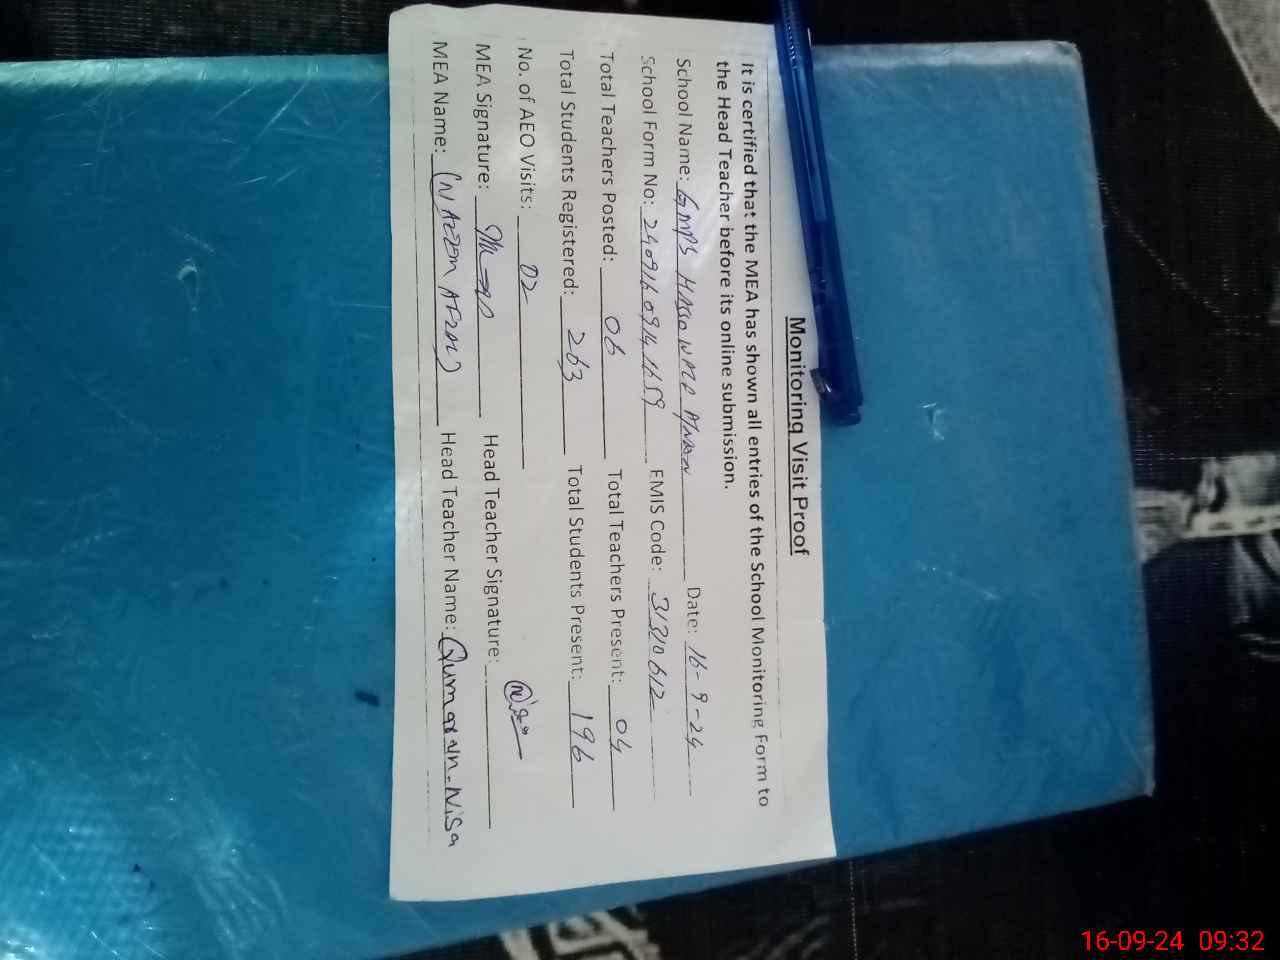 Monitoring Visit Proof
It is certified that the MEA has shown all entries of the School Monitoring Form to
the Head Teacher before its online submission.
School Name: GMPS Date: 16-9-24
School Form No: EMIS Code: 31310612
Total Teachers Posted: 06 Total Teachers Present: 04
Total Students Registered: 263 Total Students Present: 196
No. of AEO Visits: 02
MEA Signature: Head Teacher Signature:
MEA Name: (NAEEM AFZAL) Head Teacher Name: Qumar-un-Nisa
16-09-24 09:32